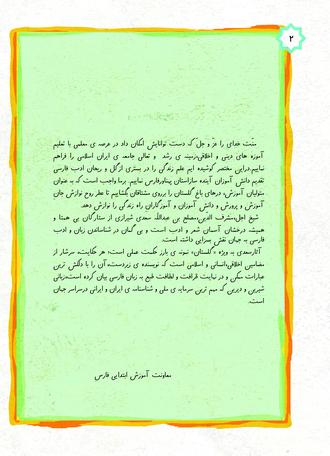 ۲
منّت خدای را عزّ و جلّ که دست توانایش امکان داد در عرصه ی معلمی با تعلیم
آموزه های دینی و اخلاقی،زمینه ی رشد و تعالی جامعه ی ایران اسلامی را فراهم
نماییم.دراین مختصر کوشیده ایم علم زندگی را در بستری ازگل و ریحان ادب فارسی
تقدیم دانش آموزان آینده سازاستان پهناورفارس نماییم. برما واجب است که به عنوان
متولیان آموزش، درهای باغ گلستان را برروی مشتاقان بگشاییم تا عطر روح نوازش جان
آموزش و پرورش و دانش آموزان و آموزگاران راه زندگی را نوازش دهد.
شیخ اجل،مشرف الدین،مصلح بن عبدالله سعدی شیرازی از ستارگان بی همتا و
همیشه درخشان آسمان شعر و ادب است و بی گمان در شناساندن زبان و ادب
فارسی به جهان نقش بسزایی داشته است.
آثارسعدی به ویژه «گلستان» نمونه ی بارز حکمت عملی است؛ هر حکایت، سرشار از
مضامین اخلاقی،انسانی و اسلامی است که نویسنده ی زبردست، آن را با دلکش ترین
عبارات ممکن و در نهایت ظرافت و لطافت طبع به زبان فارسی بیان کرده است،زبانی
شیرین و دیرین که مهم ترین سرمایه ی ملی و شناسنامه ی ایران و ایرانی درسراسر جهان
است.
معاونت آموزش ابتدایی فارس